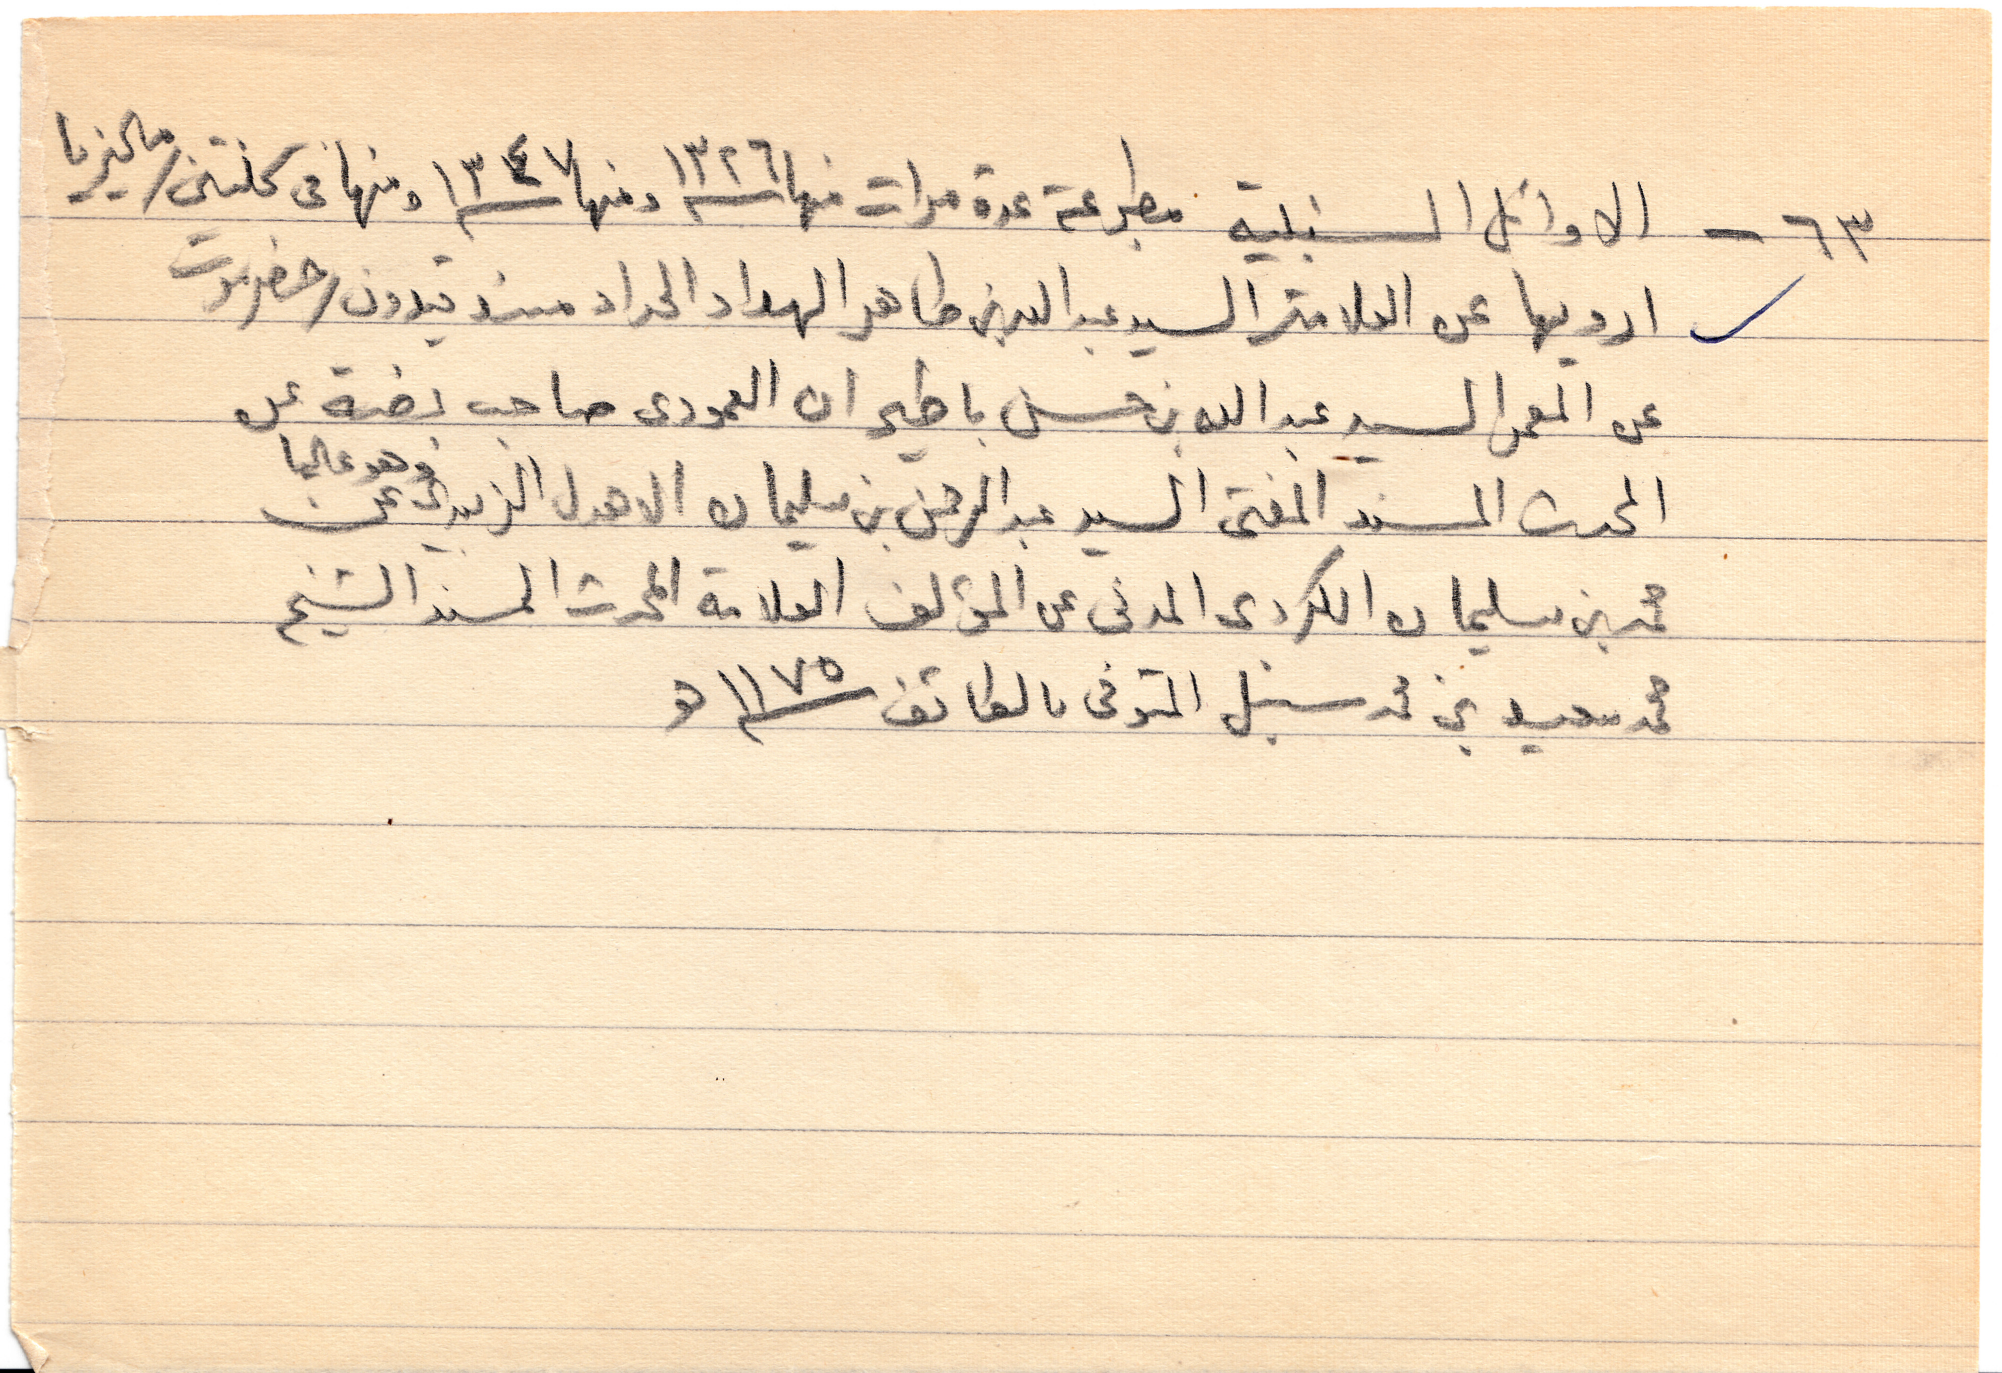 ٦٣ – الاوائل السنبلية مطبوعة عدة مرات منها سنة ١٣٢٦ ومنها سنة ١٣٤٧ ومنها في كلنتن/ماليزيا
ارويها عن العلامة السيد عبد الله بن طاهر الهداد الحداد مسند قيدون/حضرموت
عن المعمر السيد عبد الله بن حسن باطيران العمودي صاحب بضة عن
المحدث المسند المفتي السيد عبد الرحمن بن سليمان الاهدل الزبيدي وهو عاليا عن
محمد بن سليمان الكردي المدني عن المؤلف العلامة المحدث المسند الشيخ
محمد سعيد بن محمد سنبل المتوفى بالطائف سنة ١١٧٥ ه